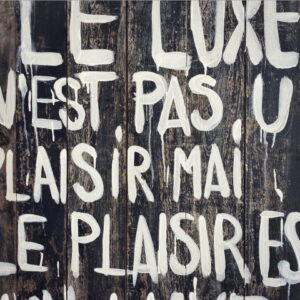 LE LUXE
N'EST PAS U
PLAISIR MAI
LE PLAISIR ES